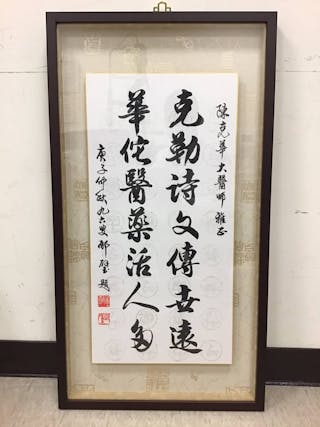 陳克華大醫師雅正
克勒詩文傳世遠
華佗醫藥活人多
庚子仲秋九六叟邴璧題